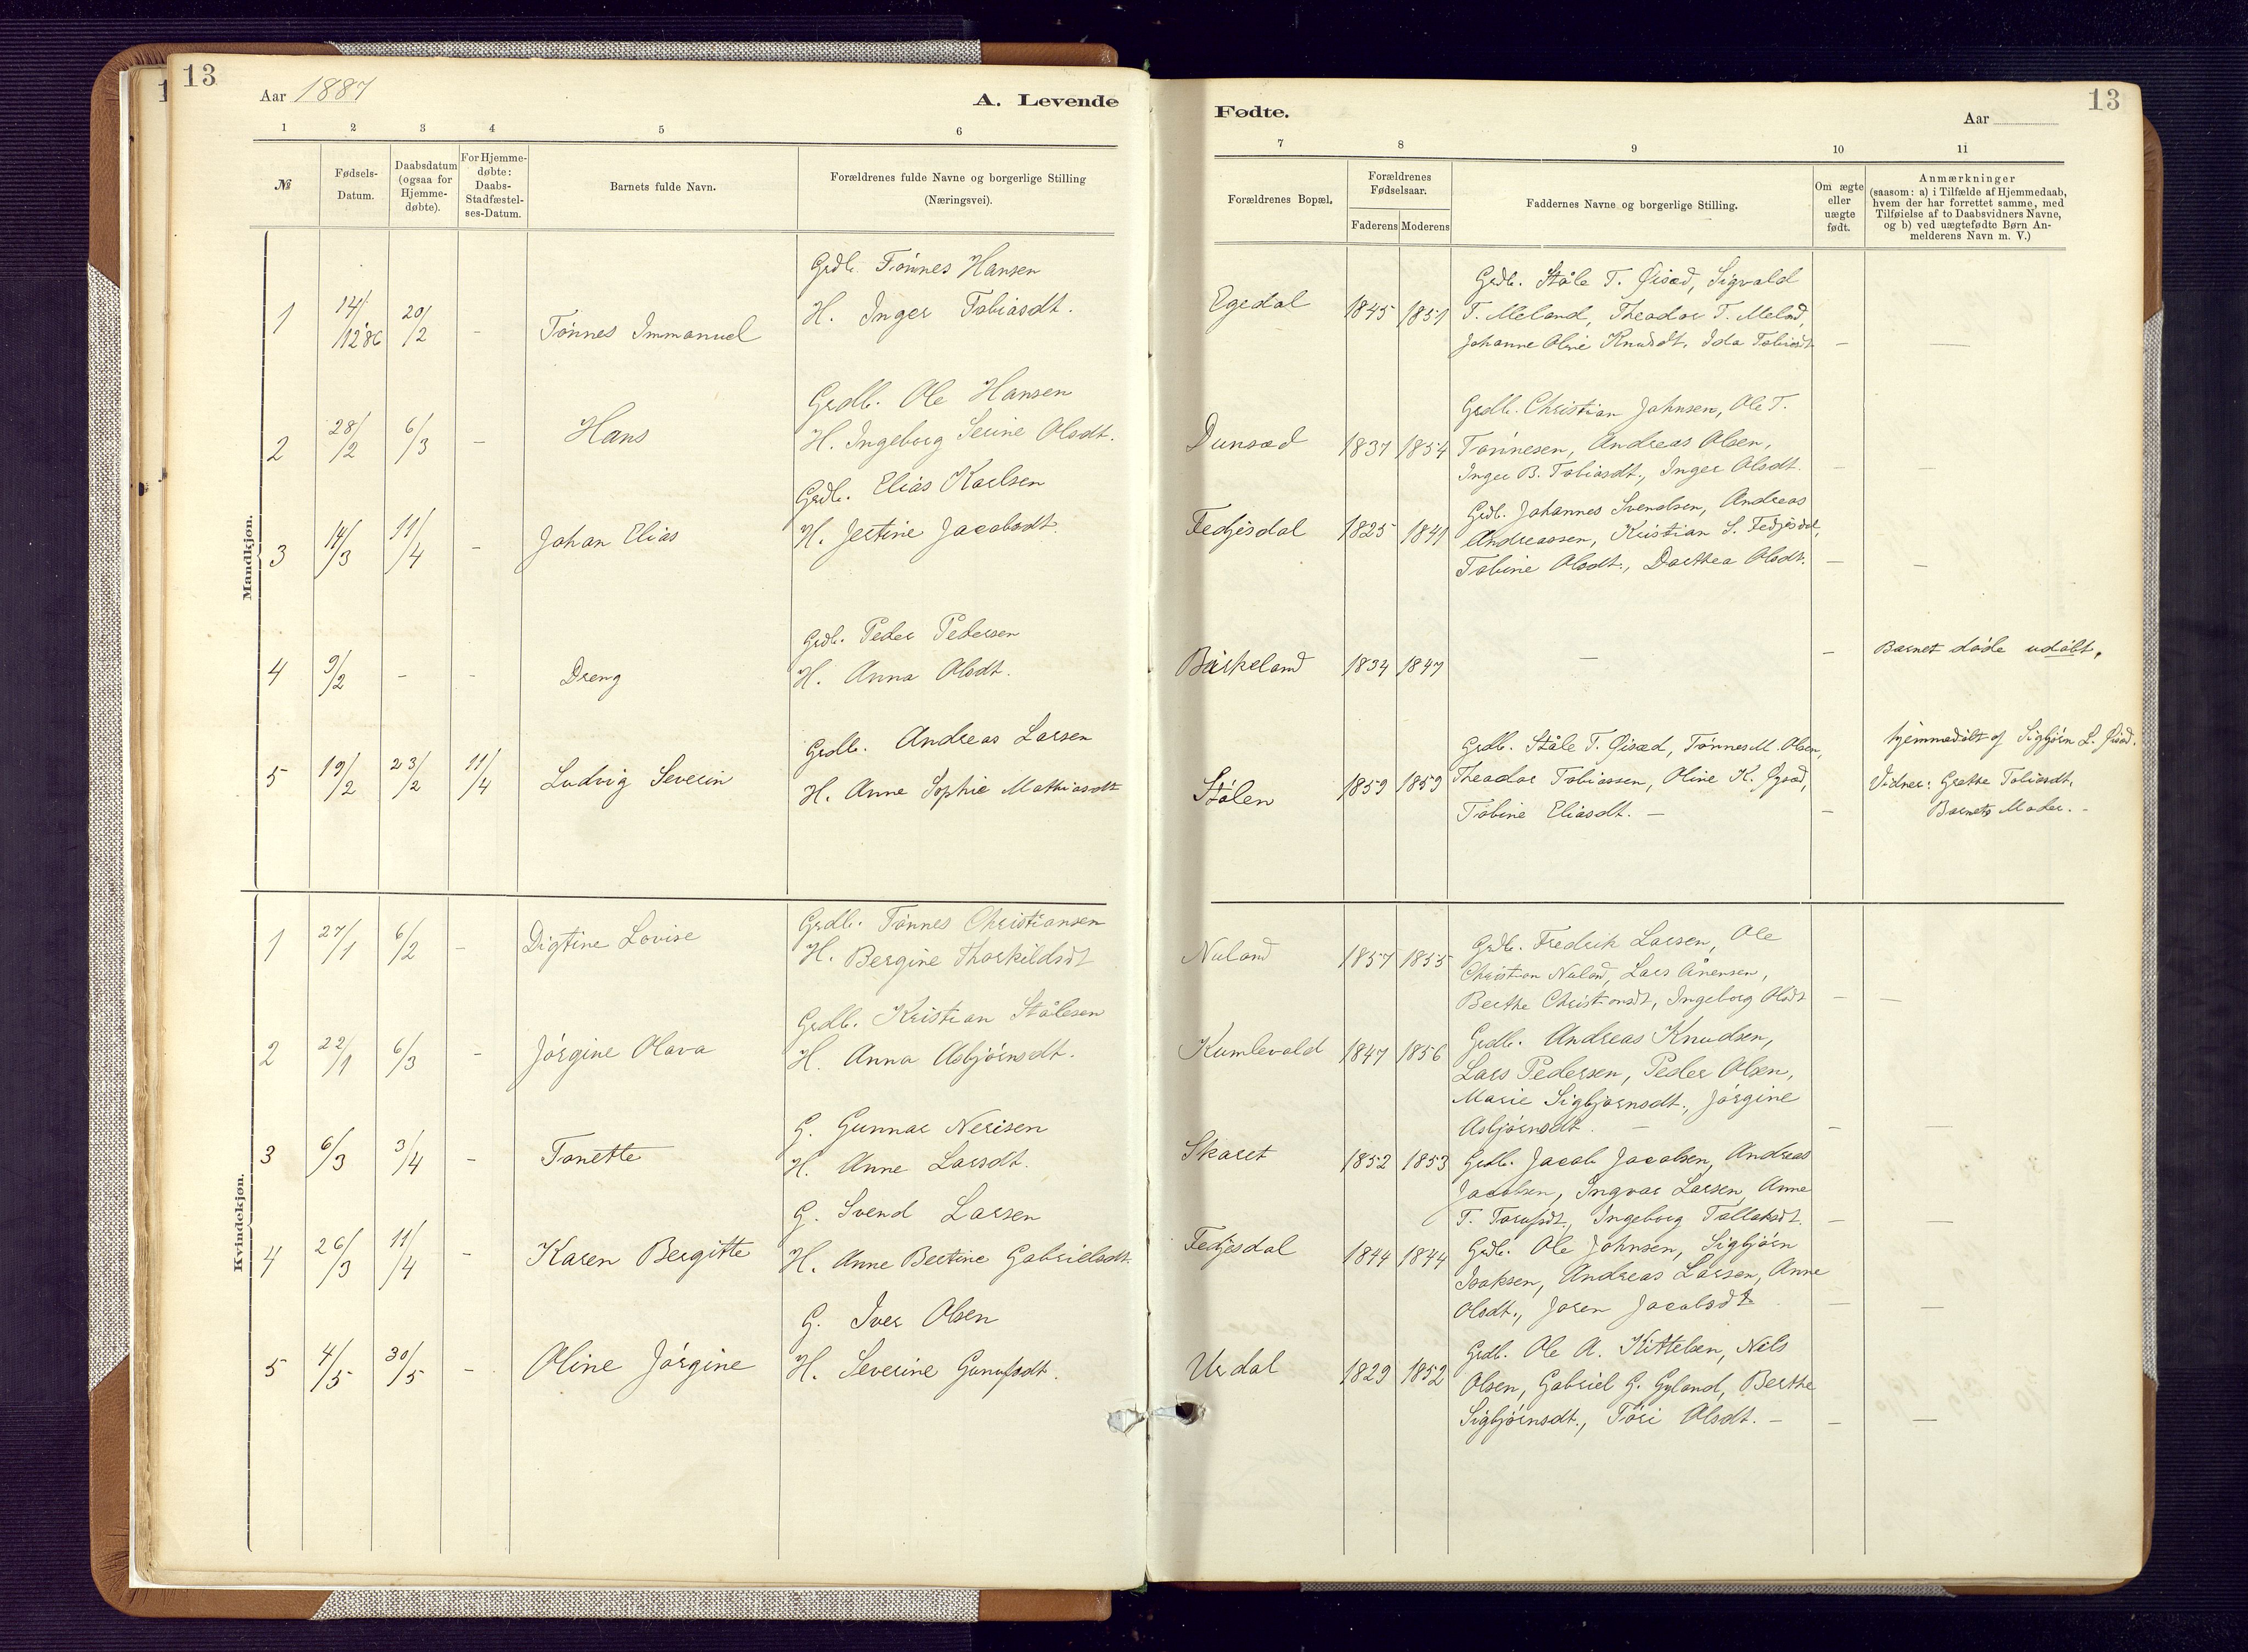 13
Aar 1887
A. Levende
1 2 3 4 5 6
№
Fødsels-
Datum.
Daabsdatum
(ogsaa for
Hjemme-
døbte).
For Hjemme-
døbte:
Daabs-
Stadfæstel-
ses-Datum.
Barnets fulde Navn.
Forældrenes fulde Navne og borgerlige Stilling
(Næringsvei).
Mandkjøn.
Grdb. Tønnes Hansen
1 14/12 86 20/2 - Tønnes Immanuel H. Inger Tobiasdt.
Grdb. Ole Hansen
2 28/2 6/3 - Hans H. Ingeborg Serine Olsdt.
Grdb. Elias Karlsen
3 14/3 11/4 - Johan Elias H. Jertine Jacobsdt.
Grdb. Peder Pedersen
4 9/2 - - Dreng H. Anna Olsdt.
Grdb. Andreas Larsen
5 19/2 23/2 11/4 Ludvig Severin H. Anne Sophie Mathiasdt
Kvindekjøn.
Grdb. Tønnes Christiansen
1 27/1 6/2 - Digtine Lovise H. Bergine Thorkildsdt
Grdb. Kristian Stålesen
2 22/1 6/3 - Jørgine Olava H. Anna Asbjørnsdt.
G. Gunnar Nerisen
3 6/3 3/4 - Tonette H. Anne Larsdt.
G. Svend Larsen
4 26/3 11/4 - Karen Bergitte H. Anne Bertine Gabrielsdt.
G. Iver Olsen
5 4/5 30/5 - Oline Jørgine H. Severine Gunufsdt.
13
Fødte.
Aar
7 8 9 10 11
Forældrenes Bopæl.
Forældrenes
Fødselsaar.
Faderens Moderens
Faddernes Navne og borgerlige Stilling.
Om ægte
eller
uægte
født.
Anmærkninger
(saasom: a) i Tilfælde af Hjemmedaab,
hvem der har forrettet samme, med
Tilføielse af to Daabsvidners Navne,
og b) ved uægtefødte Børn An-
melderens Navn m. V.)
Grdb. Ståle T. Øisæd, Sigvald
Egedal 1845 1851 T. Meland, Theodor T. Melad,
Johanne Olive Knudsdt, Ida Tobiasdt - -
Grdb. Christian Johnsen, Ole T.
Dunsæd 1837 1854 Tønnesen, Andreas Olsen,
Inger B. Tobiasdt., Inger Olsdt. - -
Grdb. Johannes Svendsen, Andreas
Fedjesdal 1825 1841 Andreassen, Kristian S. Fedjesdal,
Tobine Olsdt., Dorthea Olsdt. - -
Birkeland 1834 1847 - - Barnet døde udøbt.
Grdb. Ståle T. Øisæd, Tønnes M. Olsen,
hjemmedøbt af Sigbjørn L. Øisæd.
Stølen 1859 1859 Theodor Tobiassen, Oline K. Øysæd,
Vidner: Grethe Tobiasdt,
Tobine Eliasdt. - -
Barnets Moder. -
Grdb. Fredrik Larsen, Ole
Nuland 1857 1855 Christian Nulad, Lars Ånensen,
Berthe Christiansdt, Ingeborg Olsdt - -
Grdb. Andreas Knudsen,
Kumlevold 1847 1856 Lars Pedersen, Peder Olsen,
Marie Sigbjørnsdt., Jørgine
Asbjørnsdt. - - -
Skaret 1852 1853 Grdb. Jacob Jacobsen, Andreas
Jacobsen, Ingvar Larsen, Anne
T. Torufsdt., Ingeborg Tollaksdt. - -
Fedjesdal 1844 1844 Grdb. Ole Johnsen, Sigbjørn
Isaksen, Andreas Larsen, Anne
Olsdt., Joren Jacobsdt - -
Grdb. Ole A. Kittelsen, Nils
Urdal 1829 1852 Olsen, Gabriel G. Gyland, Berthe
Sigbjørnsdt., Tøri Olsdt. - - -